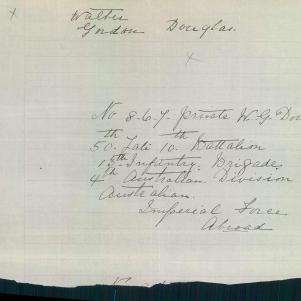 Walter
Gordon Douglas.
No 8.6.7. Private W. G. Dou
50.th Late 10.th Battalion
13th Infantry. Brigade
4th Australian. Division
Australian.
Imperial Force
Abroad